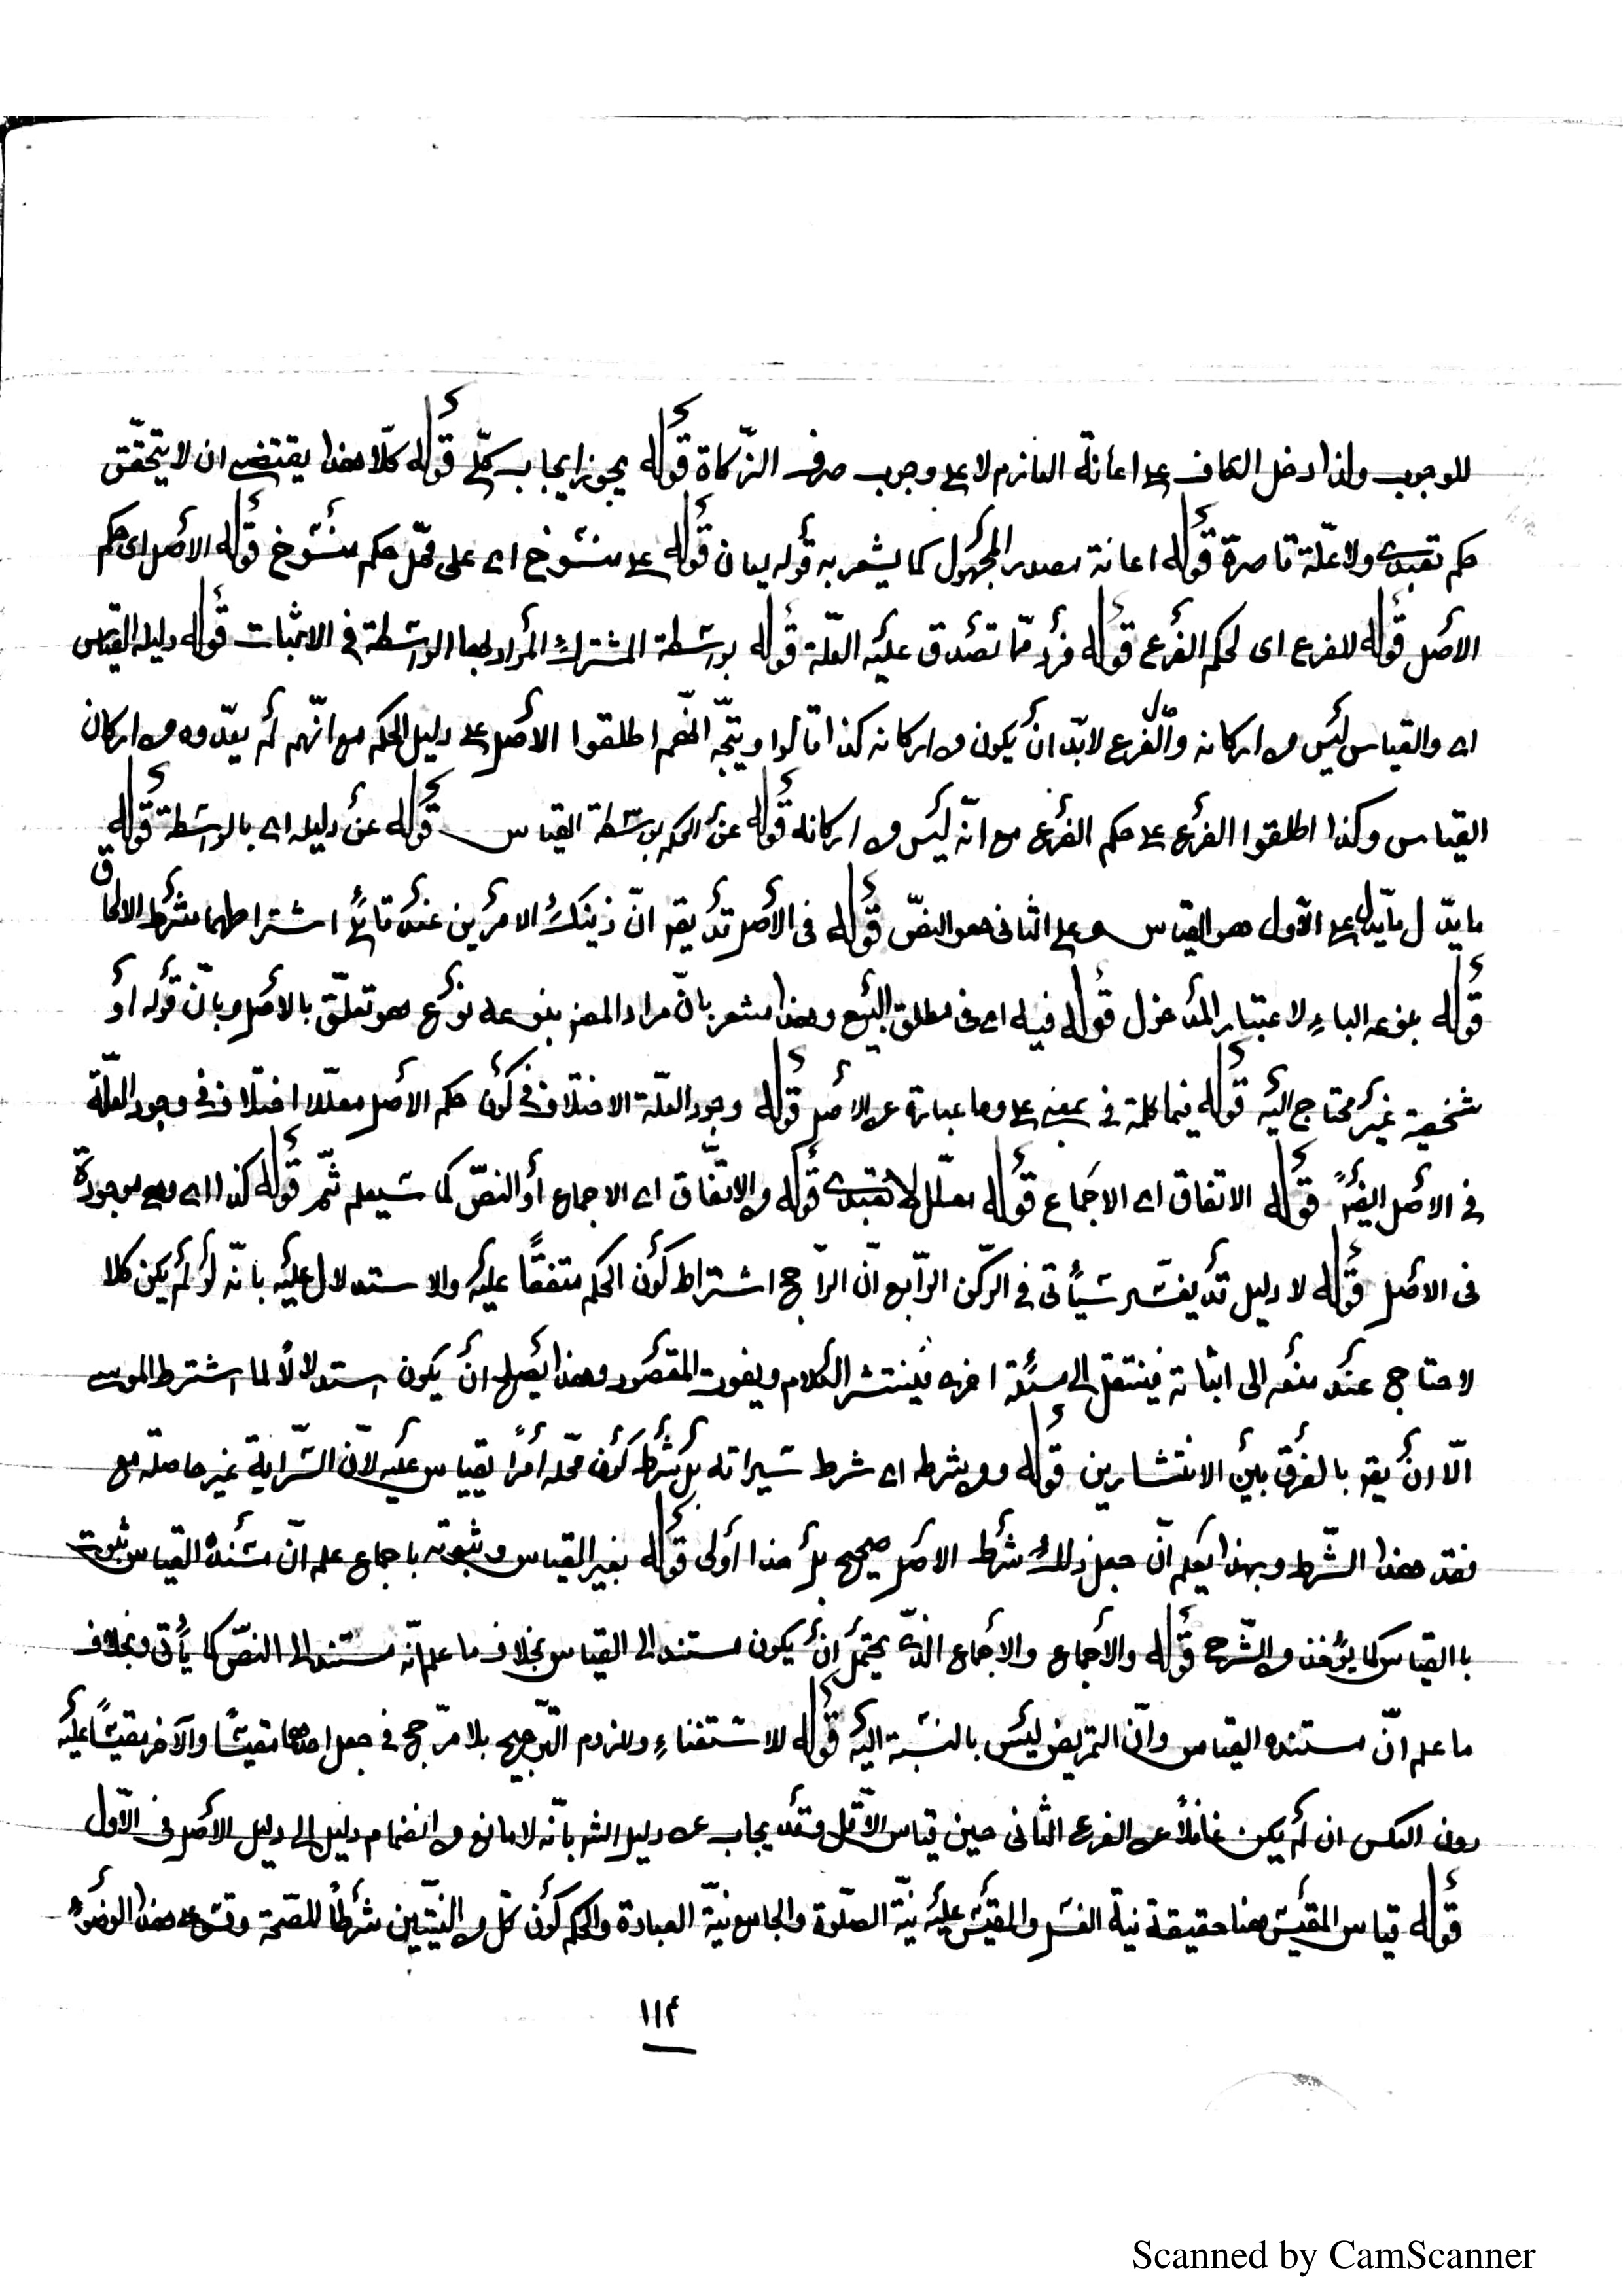 للوجوب ولذا دخل الكاف على اعانة الغارم لا على وجوب صرف الزّكاة قوله يجوز ايجاب كلّي قوله كلّا هذا يقتضى ان لا يتحقّق
حكم تعبّدى ولا علّة قاصرة قوله اعانة مصدر المجهول كما يشعر به قوله بيان قوله على منسوخ اى على محلّ حكم منسوخ قوله الاصل اى حكم
الأصل قوله للفرع اى لحكم الفرع قوله فرد ممّا تصدق عليه العلّة قوله بواسطة المشترك المراد بها الواسطة فى الاثبات قوله دليله القياس
اى والقياس ليس من اركانه والفرع لابدّ ان يكون من اركانه كذا قالوا ويتّجه انّهم اطلقوا الأصل على دليل الحكم مع انّهم لم يعدّوه من اركان
القياس وكذا اطلقوا الفرع على حكم الفرع مع انّه ليس من اركانه قوله عن الحكم بواسطة القياس قوله عن دليله اى بالواسطة قوله
ما يدلّ ما يدل على الأول هو القياس وعلى الثانى هو النصّ قوله فى الأصل قد يقر انّ ذينك الامرين عند قائل اشتراطهما شرط الالحاق
قوله بنوعه الباء لاعتبار المدخول قوله فيه اى فى مطلق البيع وهذا مشعر بانّ مراد المص بنوعه نوع هو تعلّق بالأصل وبانّ قوله او
شخصية غير محتاج اليه قوله فيما كلمة فى بمعنى على وما عبارة عن الاصل قوله وجود العلّة الاختلاف فى كون حكم الأصل معلّلا اختلاف فى وجود العلّة
فى الاصل ايضً قوله الاتفاق اى الاجماع قوله معلّل لا تعبّدى قوله والاتّفاق اى الاجماع أو النصّ كما سيعلم ثمّر قوله كذا اى وهى موجودة
فى الاصل قوله لا دليل قد يفسّر سيأتى فى الرّكن الرّابع انّ الرّاجح اشتراط كون الحكم متفقًا عليه والاستدلال عليه بانّه لو لم يكن كلا
لاحتاج عند منعه الى اثباته فينتقل الى مسئلة اخرى فينتشر الكلام ويفوت المقصود وهذا يصلح ان يكون استدلالاً لما اشترط الموسى
الّا ان يقر بالفرق بين الانتشارين قوله ومن شرطه اى شرط سيراته بل شرط كون محلّه امرًا يقاس عليه لانّ السّراية غير حاصلة مع
فقد هذا الشّرط وبهذا يعلم انّ جعل ذلك شرط الاصل صحيح بل هذا أولى قوله بغير القياس وثبوته باجماع علم انّ سنده القياس ثبوت
با القياس كما يؤخذ من الشّرح قوله والأجماع والأجماع الذّى يحتمل أن يكون مستند الى القياس بخلاف ما علم انّه مستند الى النصّ كما يأتى وبخلاف
ما علم انّ مستنده القياس وانّ التمريض ليس بالنسبة اليه قوله للاستغناء وللزوم التّرجيح بلا مرّجح فى جعل احدهما مقيسًا والآخر مقيسًا عليه
دون العكس ان لم يكن غافلاً عن الفرع الثانى حين قياس الأوّل وقد يجاب عن دليل الشر بانّه لا مانع من انضمام دليل الى دليل الأصل فى الأوّل
قوله قياس المقيس هنا حقيقة نية الغسل والمقيس عليه نيّة الصلوة والجامع نيّة العبادة والحكم كون كل من النيّتين شرطًا للصّحة وقس على هذا الوضوء
١١٤
Scanned by CamScanner